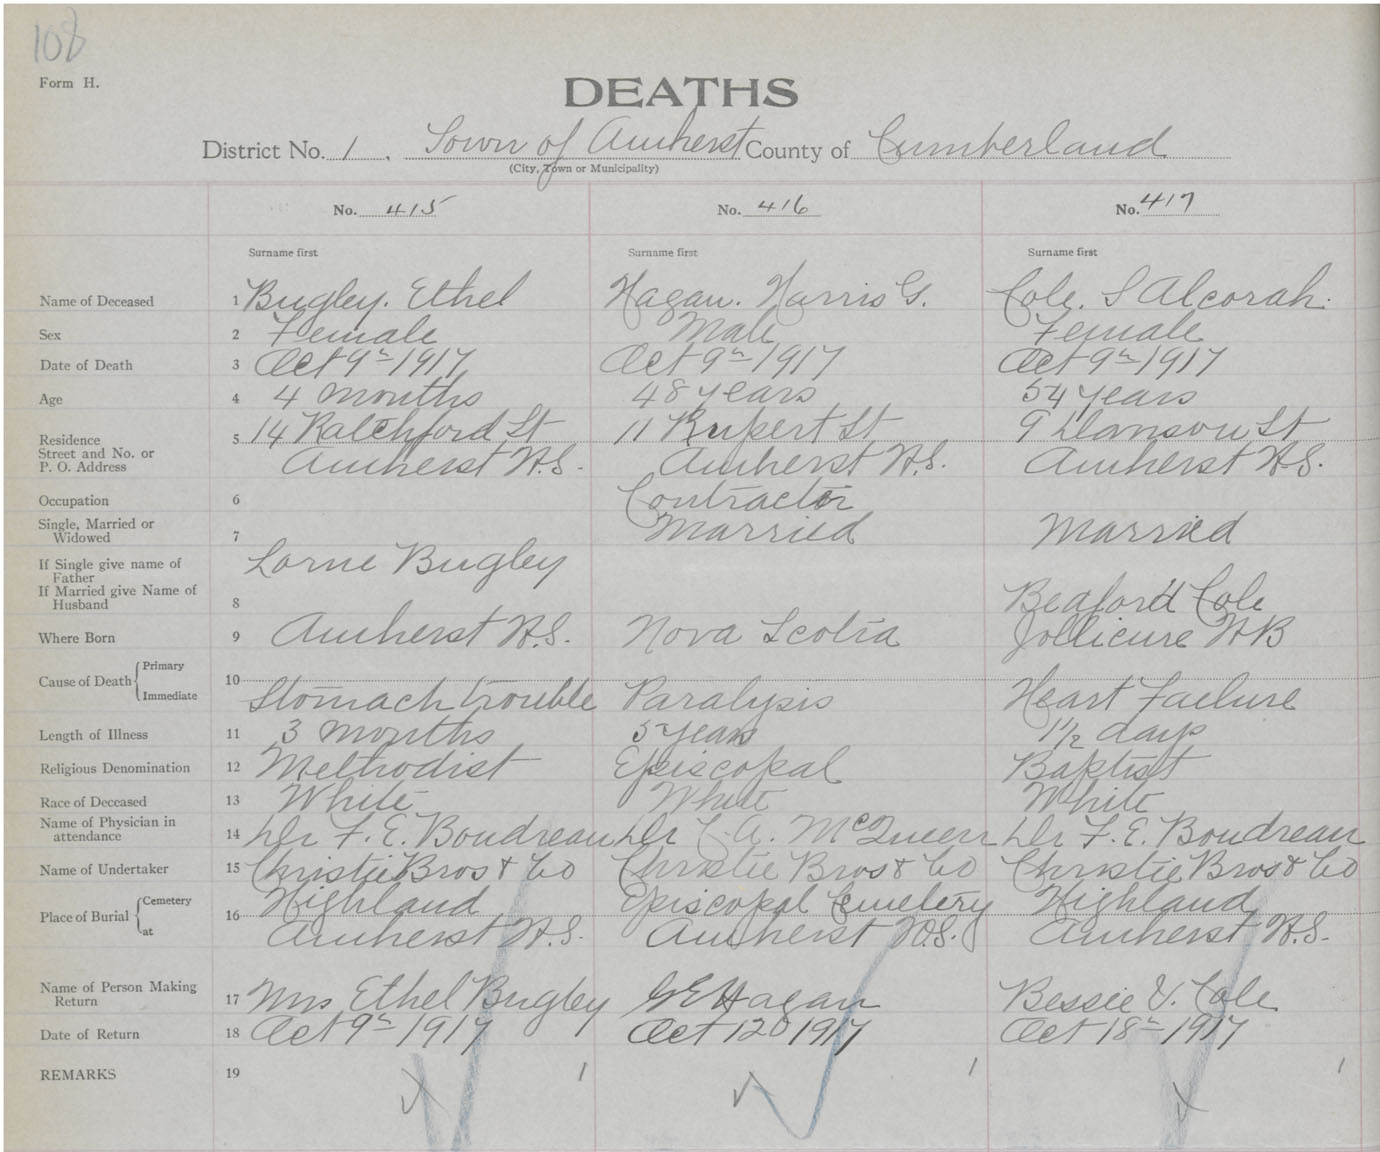 108
Form H.
DEATHS
District No. 1, Town of Amherst County of Cumberland
(City, Town or Municipality)
No. 415 No. 416 No. 417
Surname first Surname first Surname first
Name of Deceased 1 Bugley. Ethel Hagan. Harris G. Cole. S Alcorah.
Sex 2 Female Male Female
Date of Death 3 Oct 9th 1917 Oct 9th 1917 Oct 9th 1917
Age 4 4 months 48 years 54 years
Residence 5 14 Ratchford St 11 Rupert St 9 St
Street and No. or
P. O. Address Amherst N.S. Amherst N.S. Amherst N.S.
Occupation 6 Contractor
Single, Married or
Widowed 7 Married Married
If Single give name of
Father Lorne Bugley
If Married give Name of
Husband 8 Beaford Cole
Where Born 9 Amherst N.S. Nova Scotia Jollicure NB
Cause of Death Primary 10
Immediate Stomach trouble Paralysis Heart Failure
Length of Illness 11 3 months 5 years 1 1/2 days
Religious Denomination 12 Methodist Episcopal Baptist
Race of Deceased 13 White White White
Name of Physician in
attendance 14 Dr F. E. Boudreau Dr C. A. McQueen Dr F. E. Boudreau
Name of Undertaker 15 Christie Bros & Co Christie Bros & Co Christie Bros & Co
Place of Burial Cemetery 16 Highland Episcopal Cemetery Highland
at Amherst N.S. Amherst N.S. Amherst N.S.
Name of Person Making
Return 17 Mrs Ethel Bugley G E Hagan Bessie V. Cole
Date of Return 18 Oct 9th 1917 Oct 12 1917 Oct 18th 1917
REMARKS 19 1 1 1